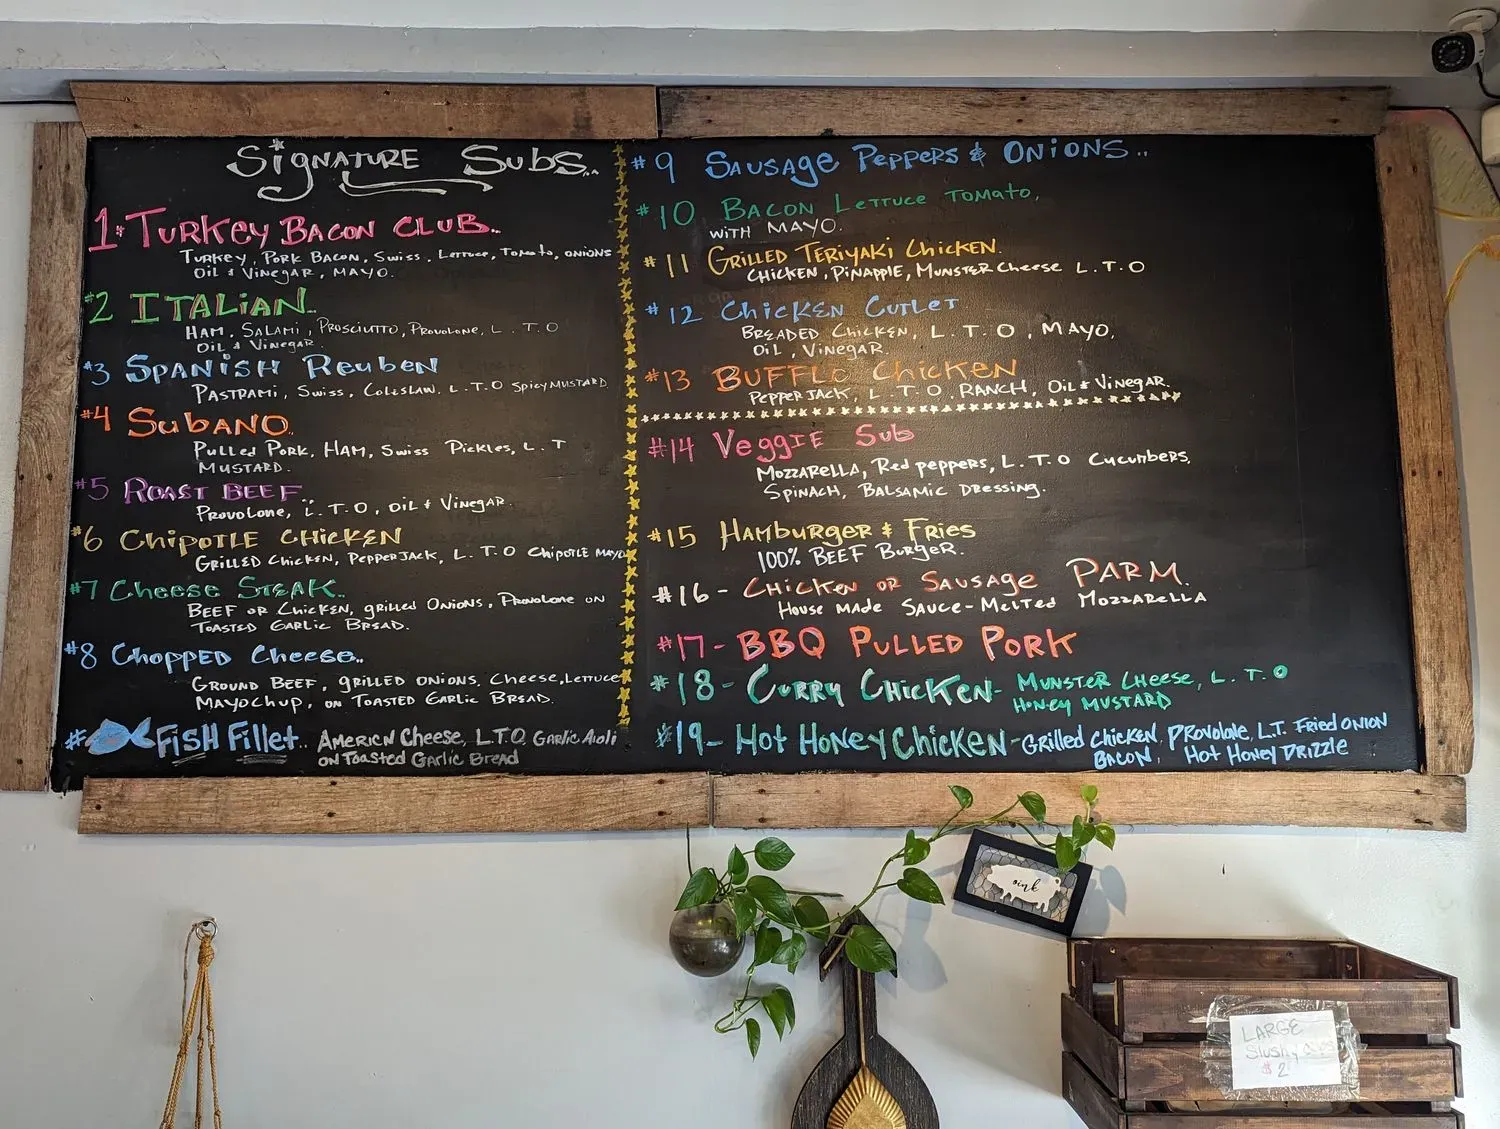 Signature Subs..
1. Turkey Bacon Club..
Turkey, Pork Bacon, Swiss, Lettuce, Tomato, onions
Oil & Vinegar, Mayo.
#2 Italian..
Ham, Salami, Prosciutto, Provolone, L.T.O
Oil & Vinegar.
#3 Spanish Reuben
Pastrami, Swiss, Coleslaw, L.T.O Spicy Mustard
#4 Subano.
Pulled Pork, Ham, Swiss Pickles, L.T
Mustard.
#5 Roast Beef..
Provolone, L.T.O, Oil & Vinegar.
#6 Chipotle Chicken
Grilled Chicken, Pepper Jack, L.T.O Chipotle Mayo
#7 Cheese Steak..
Beef or Chicken, grilled Onions, Provolone on
Toasted Garlic Bread.
#8 Chopped Cheese..
Ground Beef, grilled onions, Cheese, Lettuce
Mayochup, on Toasted Garlic Bread.
# Fish Fillet.. Americn Cheese, L.T.O, Garlic Aioli
on Toasted Garlic Bread
#9 Sausage Peppers & Onions..
#10 Bacon Lettuce Tomato,
with Mayo.
#11 Grilled Teriyaki Chicken.
Chicken, Pinapple, Munster Cheese L.T.O
#12 Chicken Cutlet
Breaded Chicken, L.T.O, Mayo,
Oil, Vinegar.
#13 Bufflo Chicken
Pepper Jack, L.T.O, Ranch, Oil & Vinegar.
#14 Veggie Sub
Mozzarella, Red peppers, L.T.O Cucumbers,
Spinach, Balsamic Dressing.
#15 Hamburger & Fries
100% Beef Burger.
#16 - Chicken or Sausage Parm.
House Made Sauce - Melted Mozzarella
#17 - BBQ Pulled Pork
#18 - Curry Chicken - Munster Cheese, L.T.O
Honey Mustard
#19 - Hot Honey Chicken - Grilled Chicken, Provolone, L.T. Fried Onion
Bacon, Hot Honey Drizzle
oink
Large
Slushy
$2